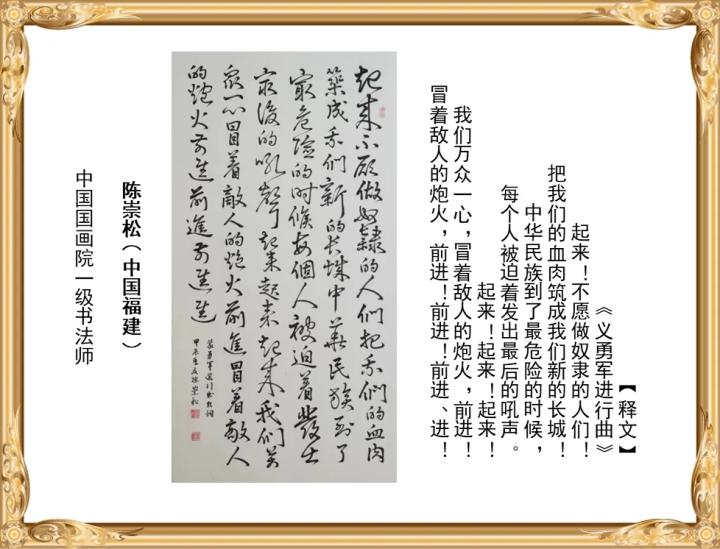 【释文】
《义勇军进行曲》
起来！不愿做奴隶的人们！
把我们的血肉筑成我们新的长城！
中华民族到了最危险的时候，
每个人被迫着发出最后的吼声。
起来！起来！起来！
我们万众一心，冒着敌人的炮火，前进！
冒着敌人的炮火，前进！前进！前进、进！
起来不愿做奴隸的人们把我们的血肉
築成我们新的长城中華民族到了
最危險的时候每個人被迫着發出
最後的吼聲起来起来起来我们万
衆一心冒着敵人的炮火前進冒着敵人
的炮火前進前進前進進
義勇軍進行曲歌詞
甲辰年夏陳崇松
陈崇松（中国福建）
中国国画院一级书法师